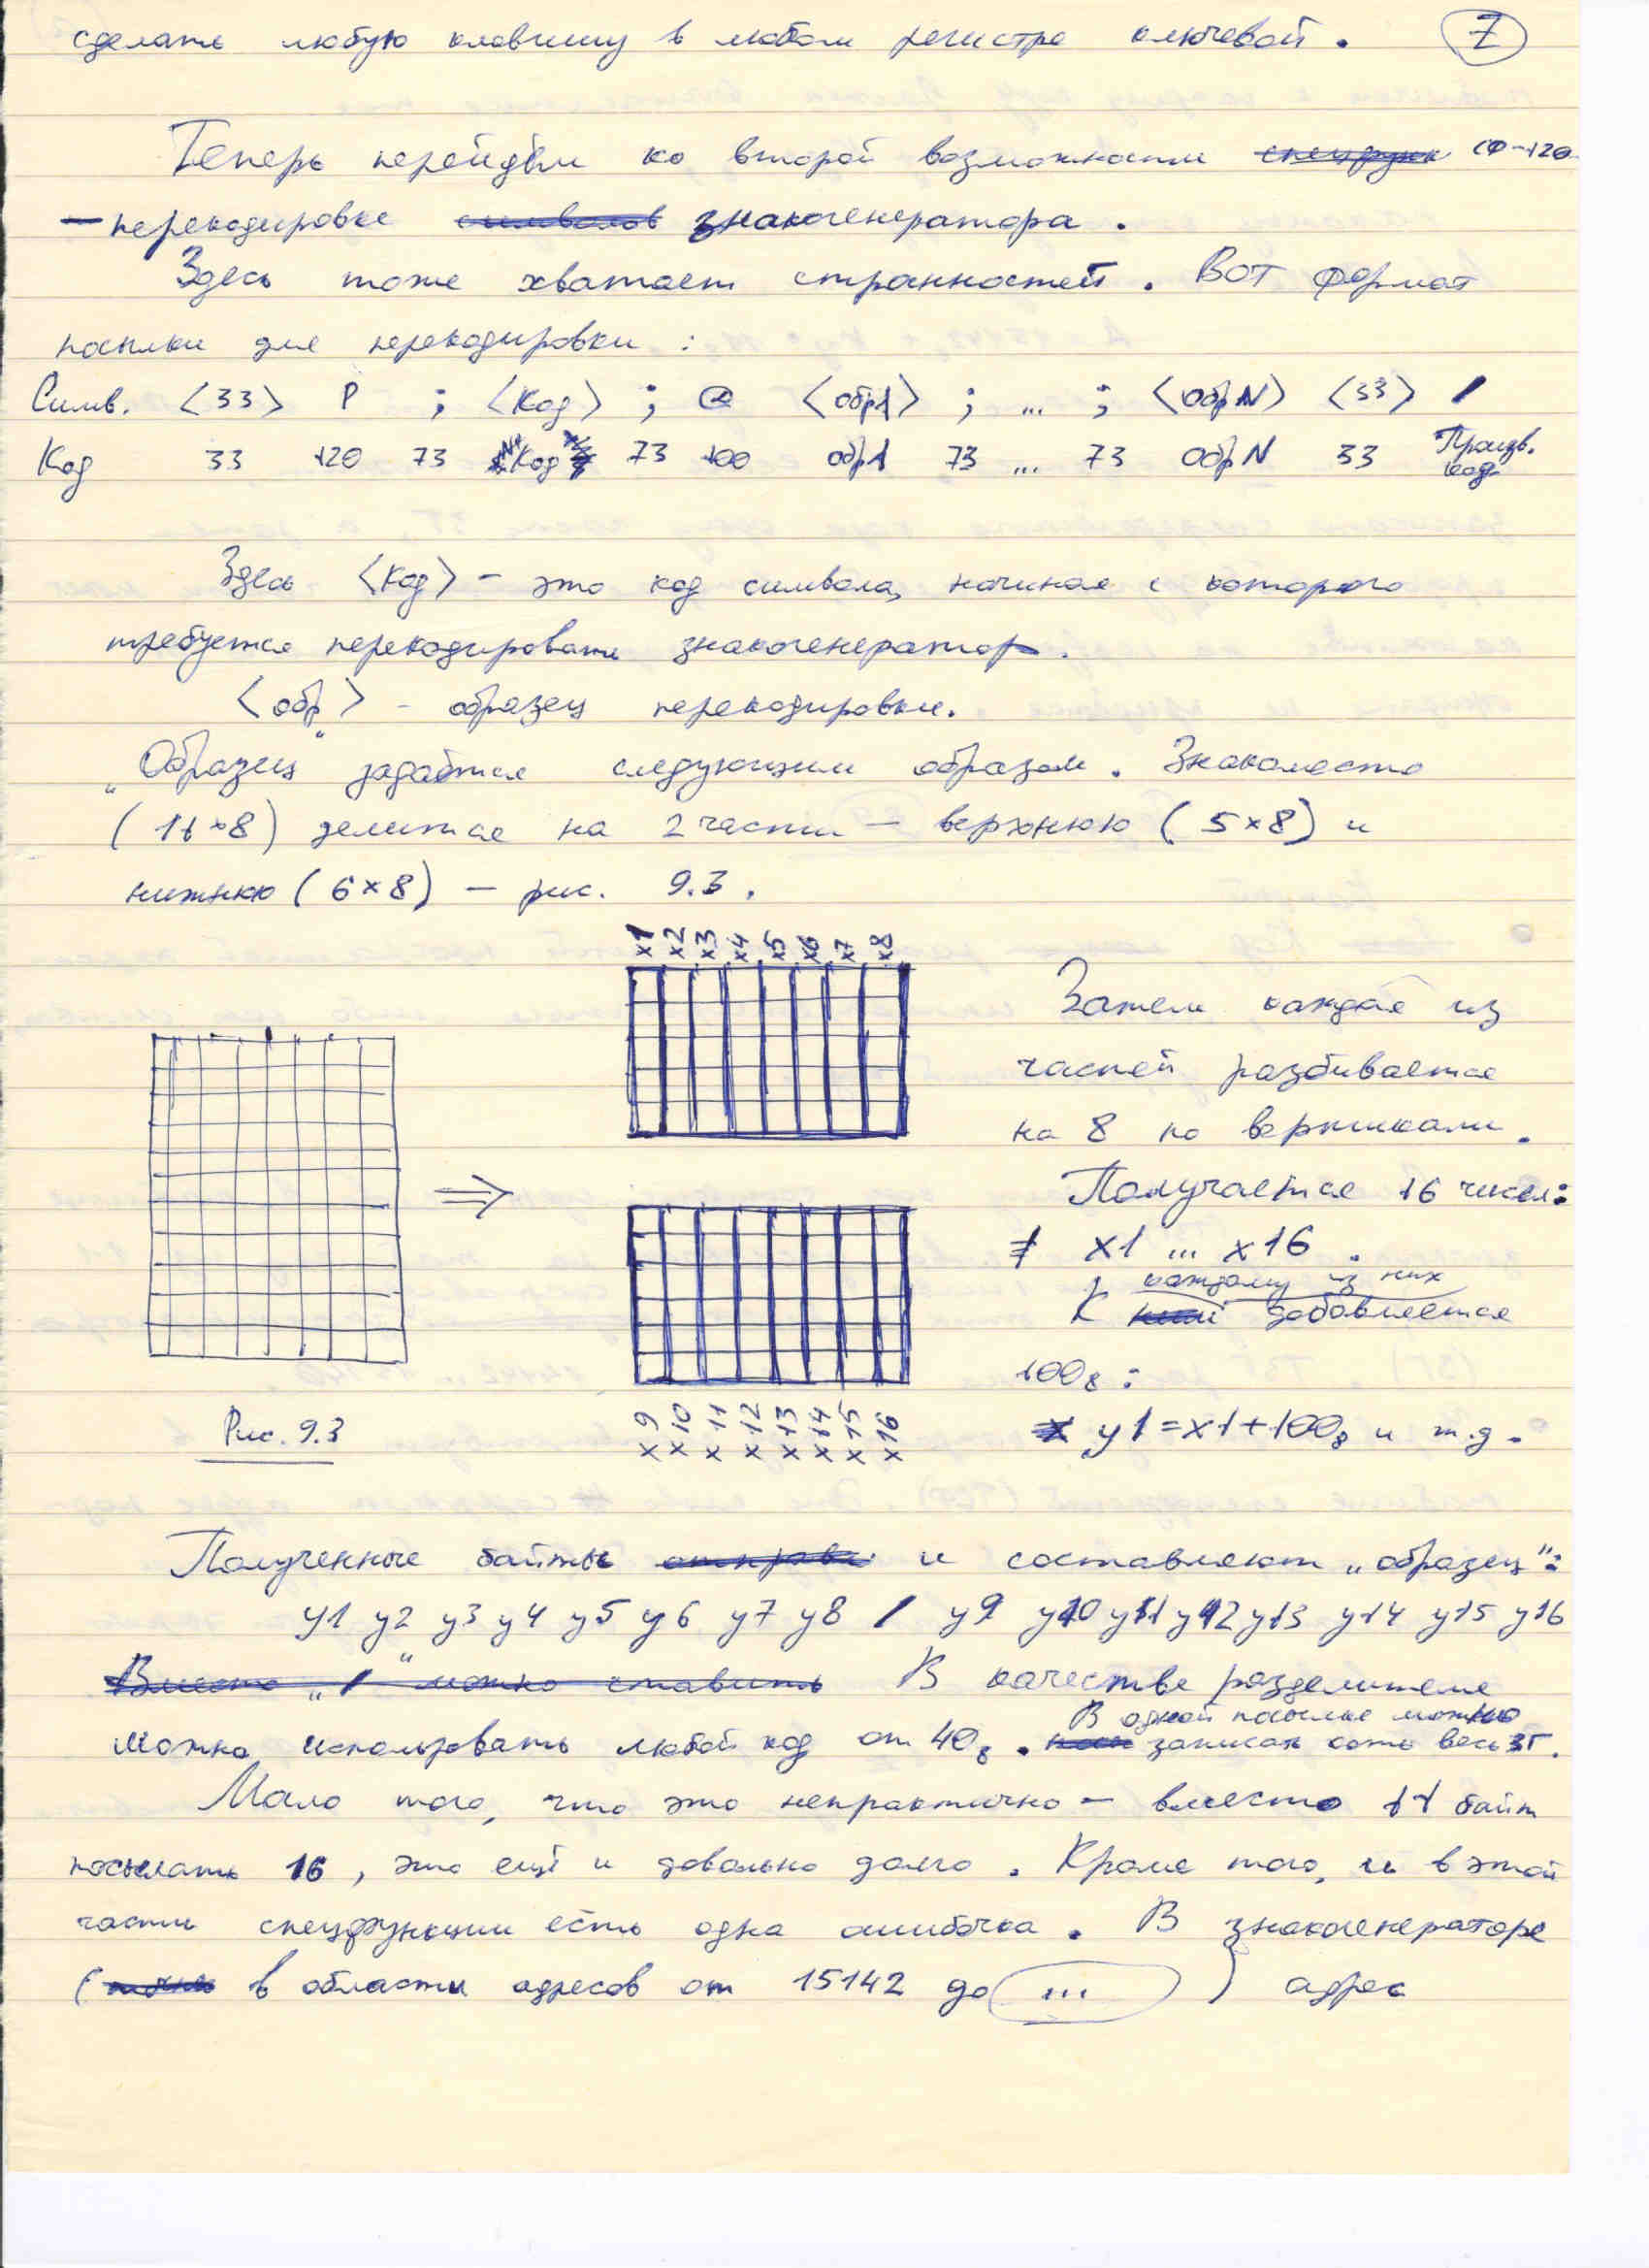 сделать любую клавишу в любом регистре ключевой. 7
Теперь перейдём ко второй возможности спецфунк СФ-120
- перекодировке символов знакогенератора.
Здесь тоже хватает странностей. Вот формат
посылки для перекодировки:
Симв. <33> P ; <Код> ; @ <обр1> ; ... ; <обрN> <33> /
Код 33 120 73 Код 73 100 обр1 73 ... 73 обрN 33 Произв. код
Здесь <Код> - это код символа, начиная с которого
требуется перекодировать знакогенератор.
<обр> - образец перекодировки.
„Образец" задаётся следующим образом. Знакоместо
(11×8) делится на 2 части - верхнюю (5×8) и
нижнюю (6×8) - рис. 9.3.
x1 x2 x3 x4 x5 x6 x7 x8
Затем каждая из
частей разбивается
на 8 по вертикали.
Получается 16 чисел:
x1 ... x16.
каждому из них
К ним добавляется
100₈:
y1=x1+100₈ и т.д.
x9 x10 x11 x12 x13 x14 x15 x16
Рис. 9.3
Полученные байты отправ и составляют „образец":
y1 y2 y3 y4 y5 y6 y7 y8 / y9 y10 y11 y12 y13 y14 y15 y16
Вместо „/" можно ставить В качестве разделителя
В одной посылке можно
можно использовать любой код от 40₈. записать хоть весь ЗГ.
Мало того, что это непрактично - вместо 11 байт
посылать 16, это ещё и довольно долго. Кроме того, и в этой
части спецфункции есть одна ошибочка. В знакогенераторе
( в области адресов от 15142 до ... ) адрес